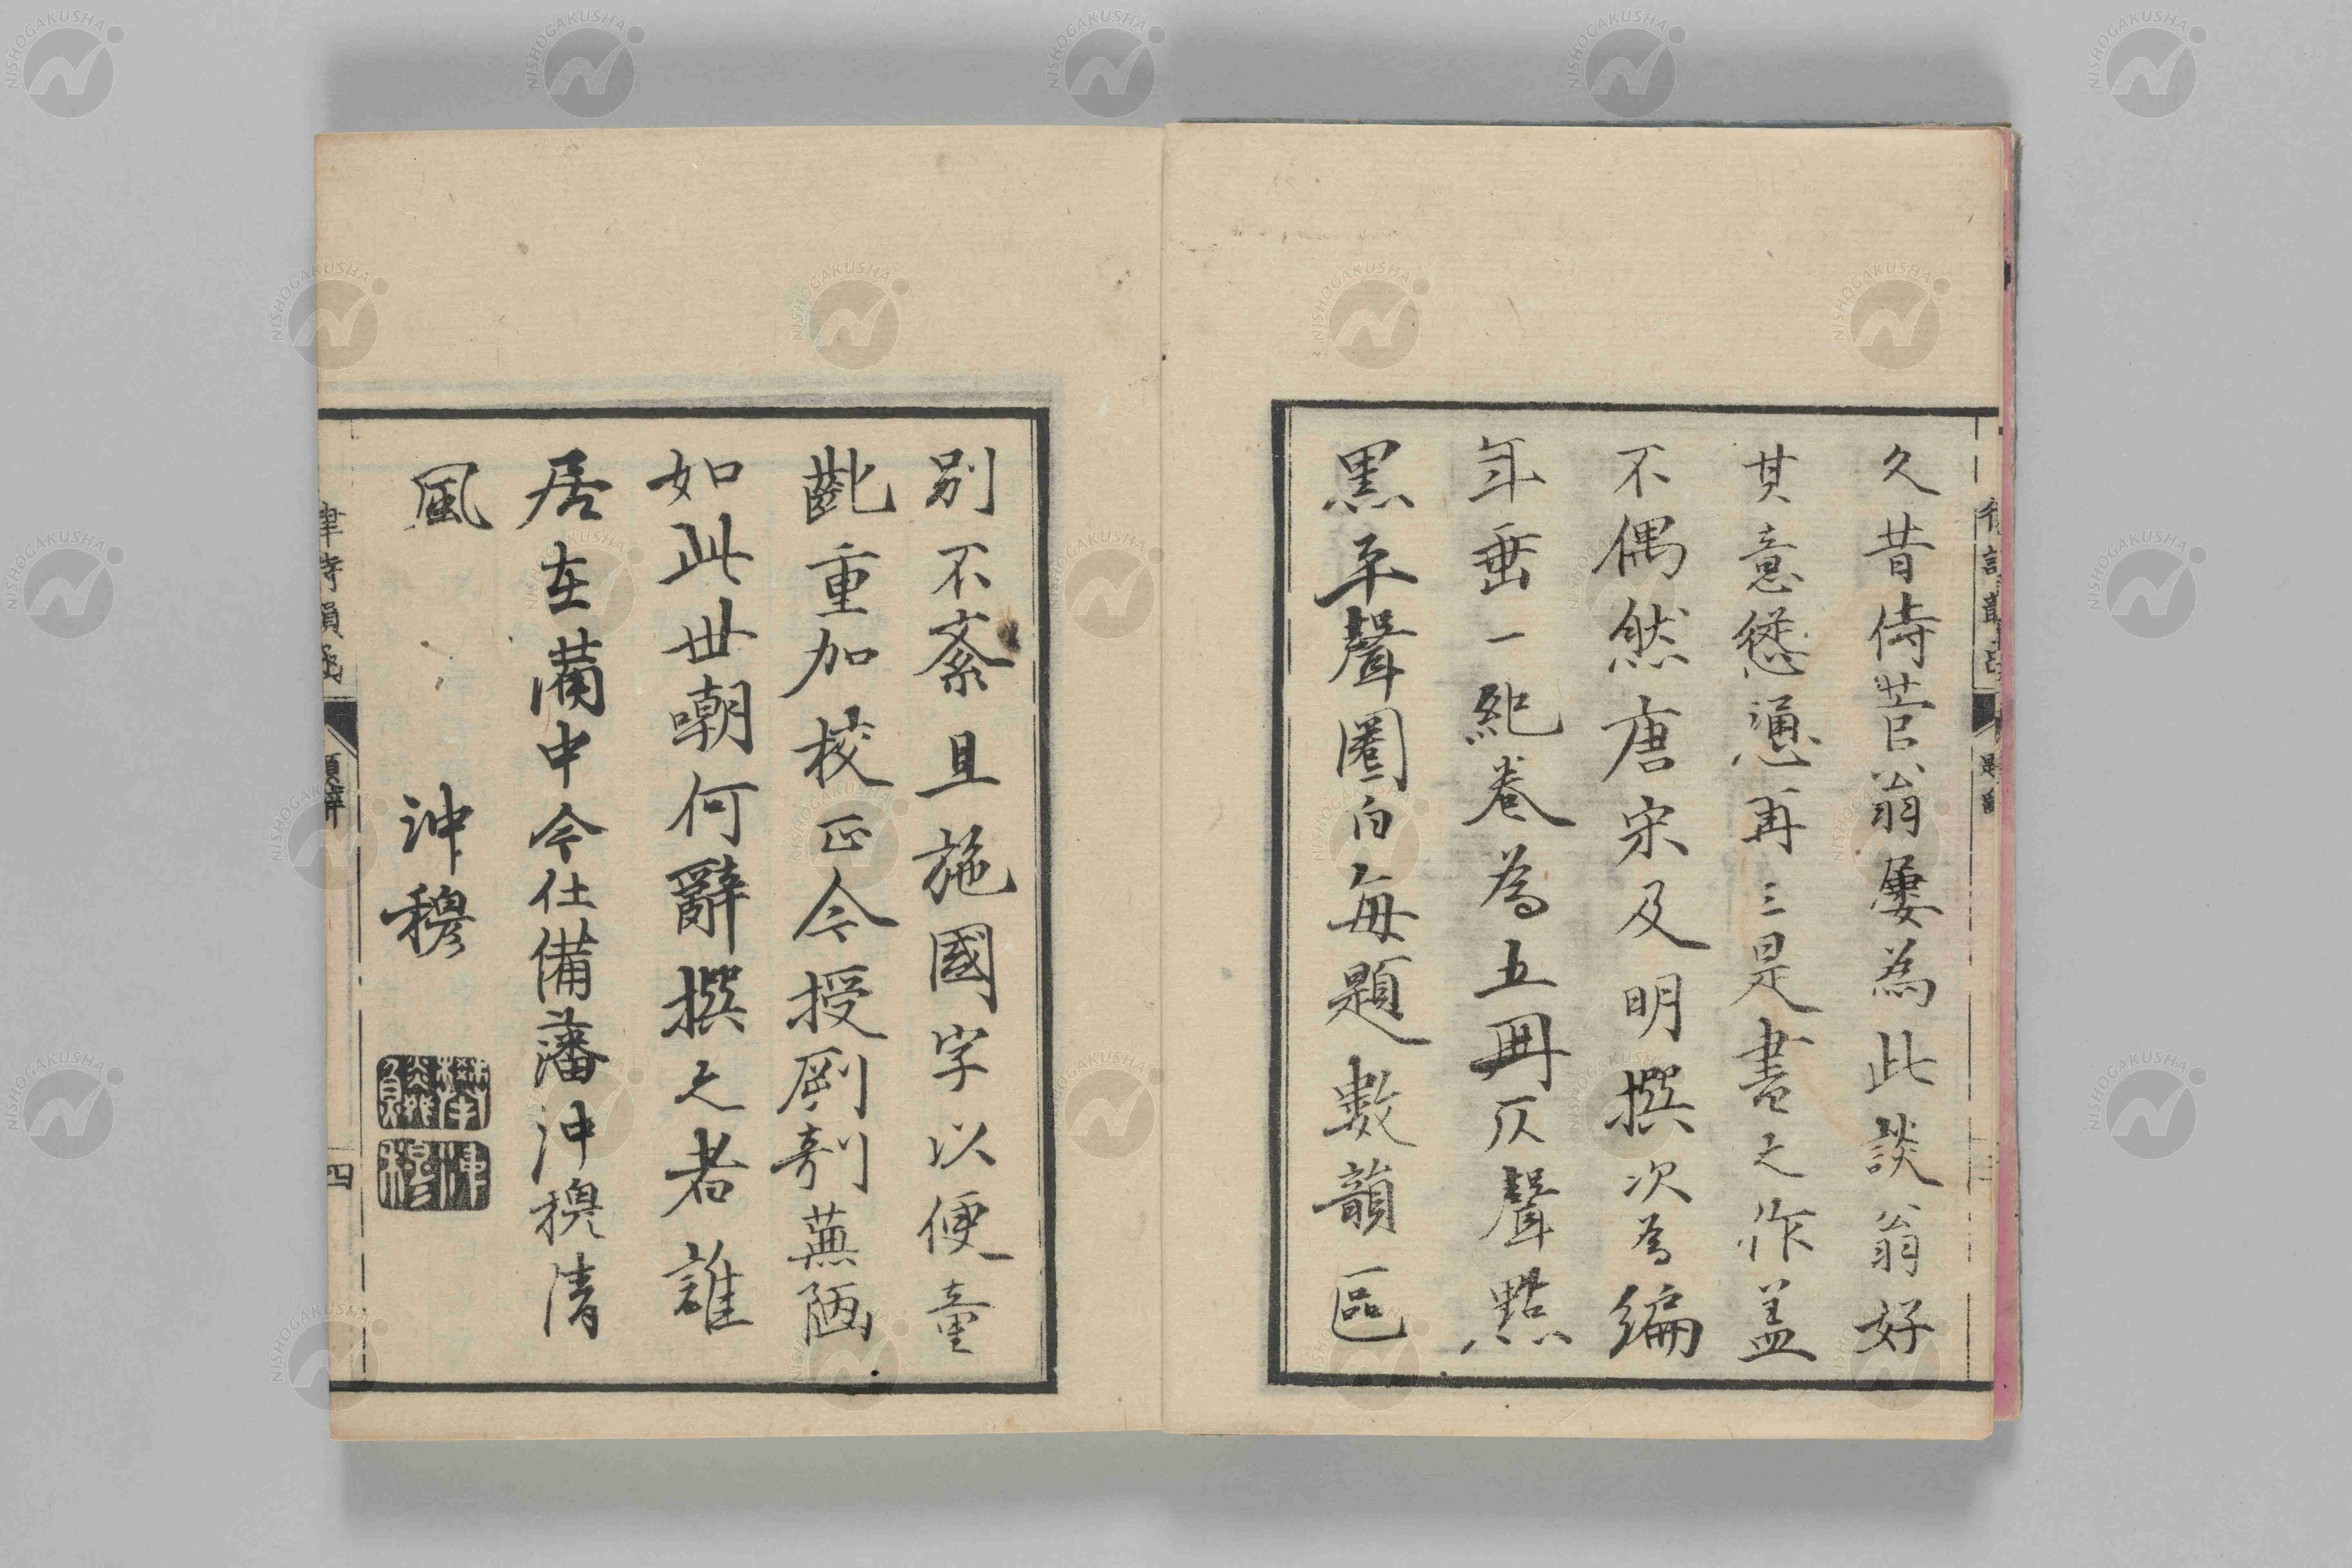 久昔侍菅翁屢為此談翁好
其意慫慂再三是書之作盖
不偶然唐宋及明撰次為編
年垂一紀卷為五冊仄聲點
黒平聲圏白每題數韻區
別不紊且施國字以便童
齔重加校正今授剞劂蕪陋
如此世嘲何辭撰之者誰
居在備中今仕備藩沖穆清
風
沖穆
律詩韻函
題辞
四